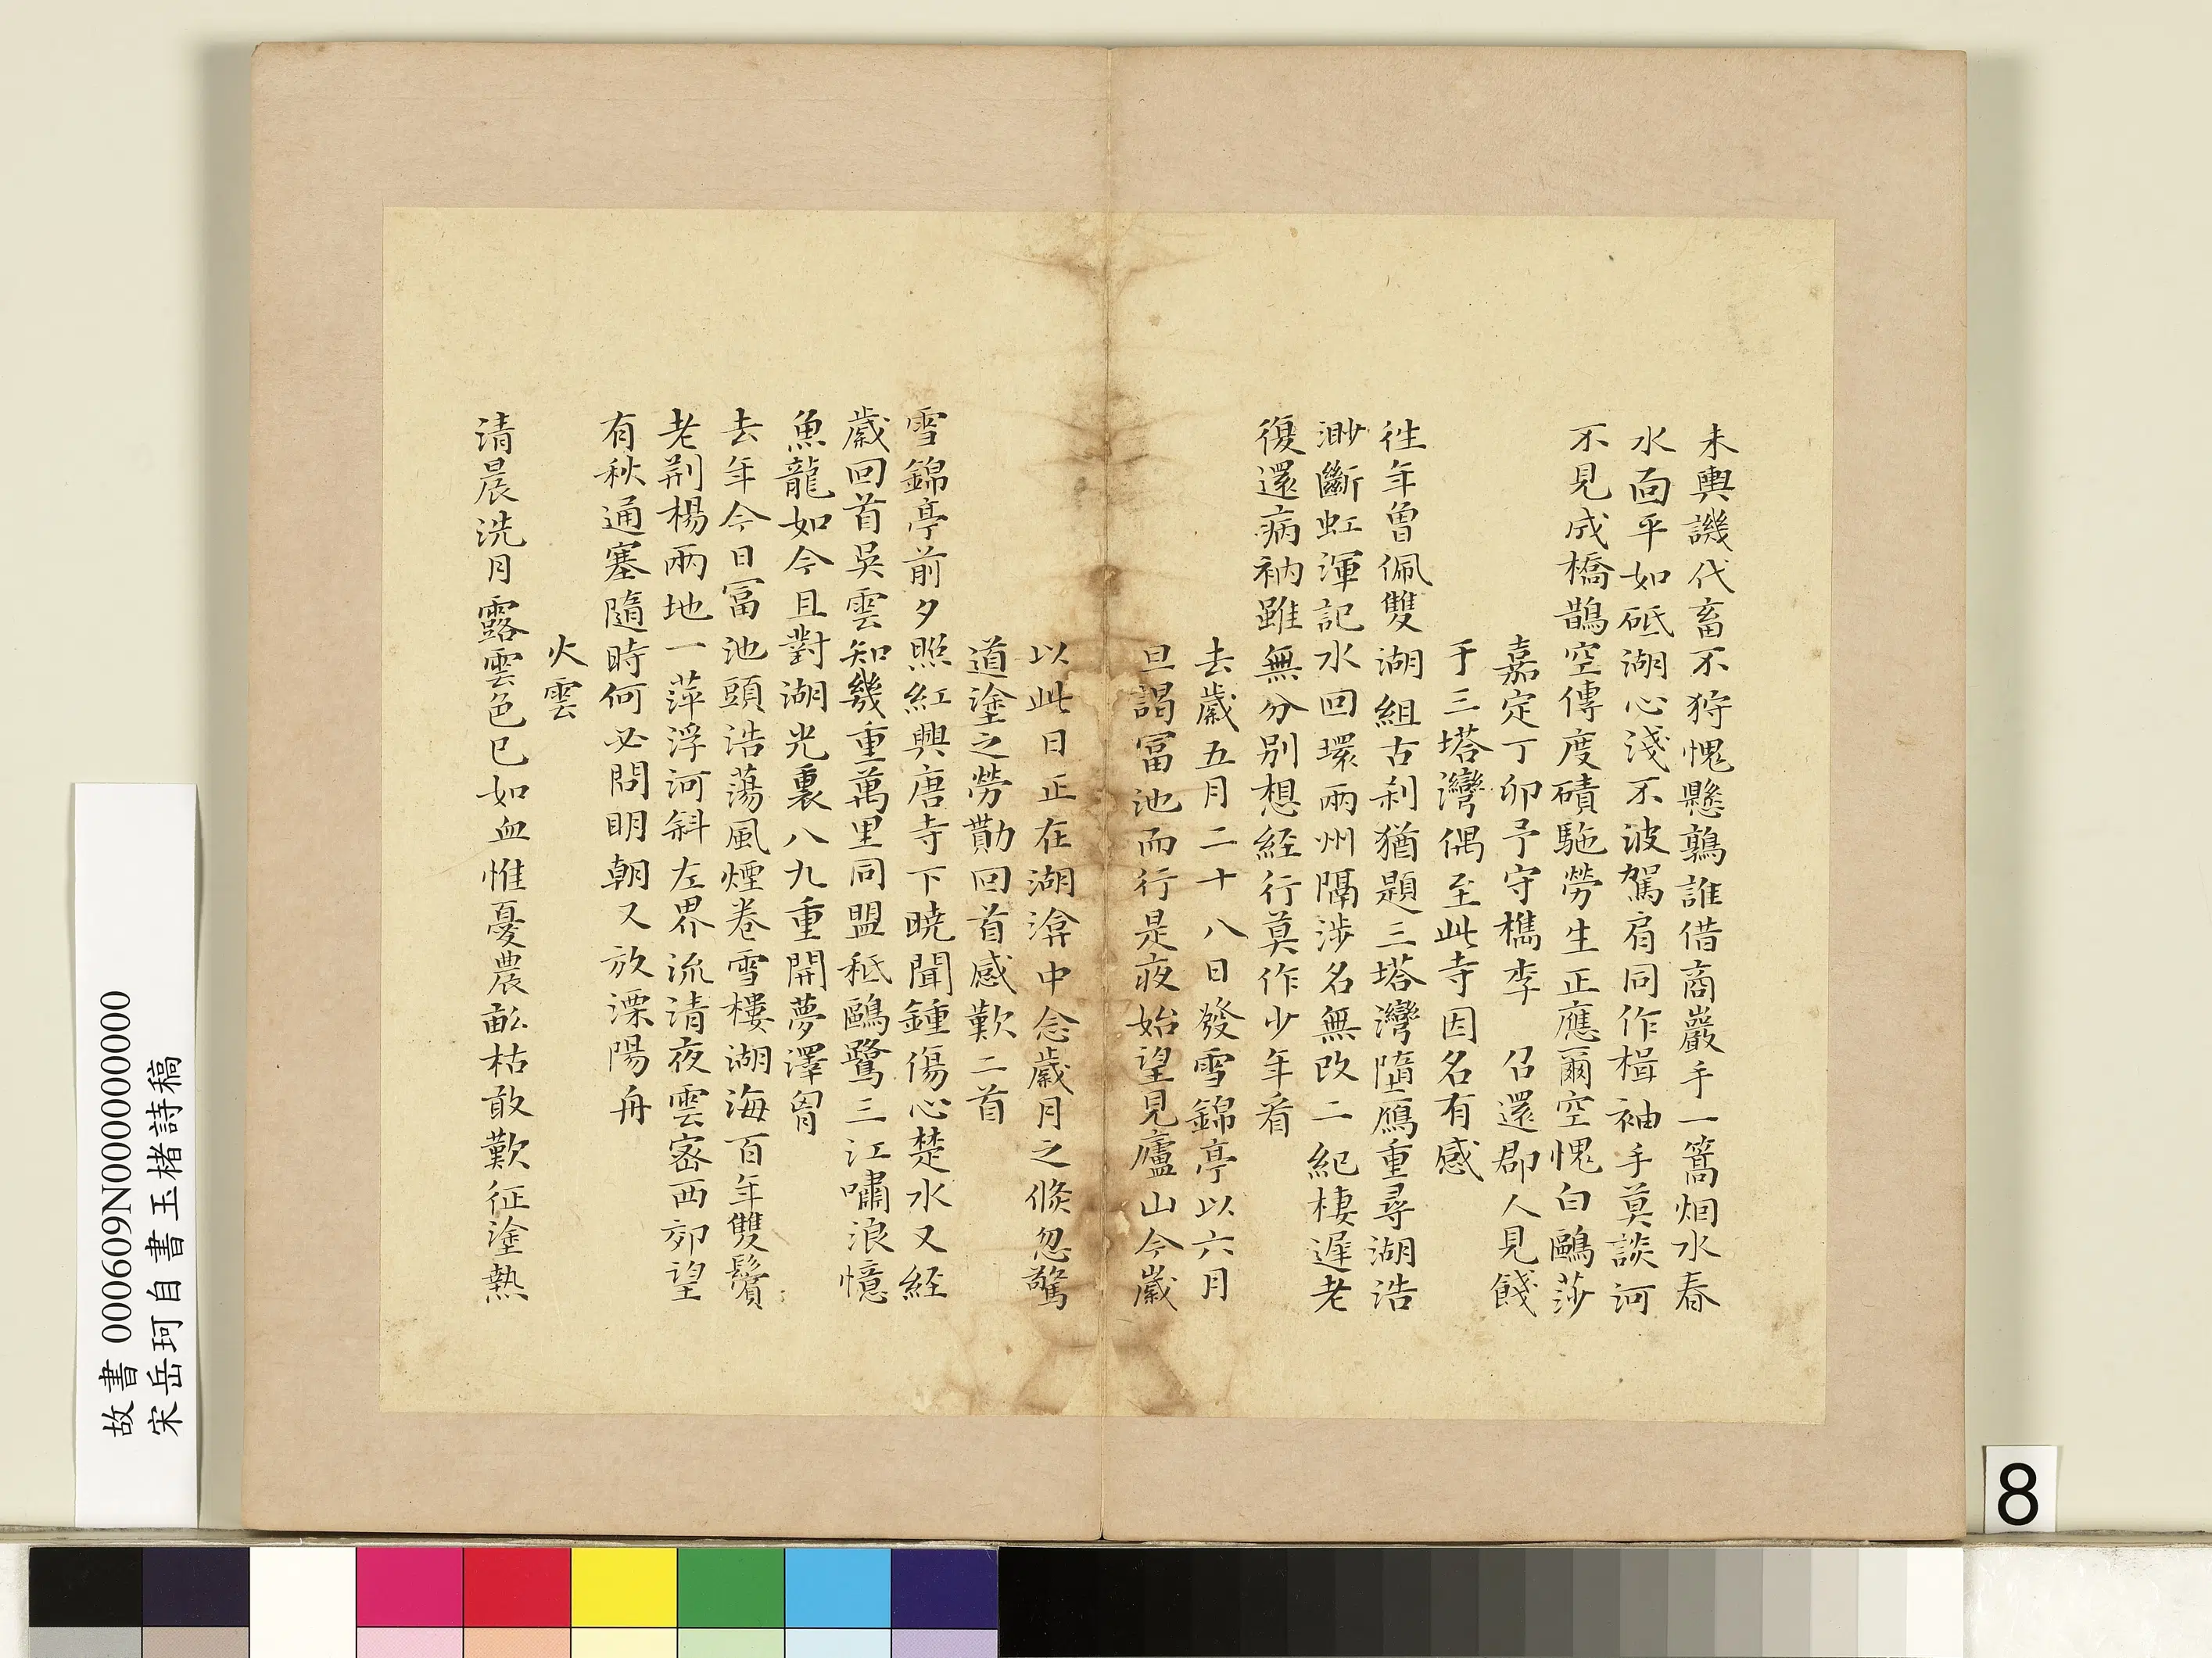 未輿譏代畜不狩愧懸鶉誰借商巖手一篙烟水春
水面平如砥湖心淺不波駕肩同作楫袖手莫談河
不見成橋鵲空傳度磧駞勞生正應爾空愧白鷗莎
嘉定丁卯予守檇李 召還郡人見餞
于三塔灣偶至此寺因名有感
往年曾佩雙湖組古刹猶題三塔灣墮鴈重尋湖浩
渺斷虹渾記水回環兩州隔涉名無改二紀棲遲老
復還病衲雖無分別想經行莫作少年看
去歲五月二十八日發雪錦亭以六月
旦謁冨池而行是夜始望見廬山今歲
以此日正在湖渰中念歲月之倏忽驚
道塗之勞勩回首感歎二首
雪錦亭前夕照紅興唐寺下曉聞鍾傷心楚水又経
歲回首吳雲知幾重萬里同盟秖鷗鷺三江嘯浪憶
魚龍如今且對湖光裏八九重開夢澤胷
去年今日冨池頭浩蕩風煙卷雪樓湖海百年雙鬢
老荆楊兩地一萍浮河斜左界流清夜雲密西郊望
有秋通塞隨時何必問明朝又放溧陽舟
火雲
清晨洗月露雲色已如血惟憂農畝枯敢歎征塗熱
故書 000609N000000000
宋岳珂自書玉楮詩稿
8